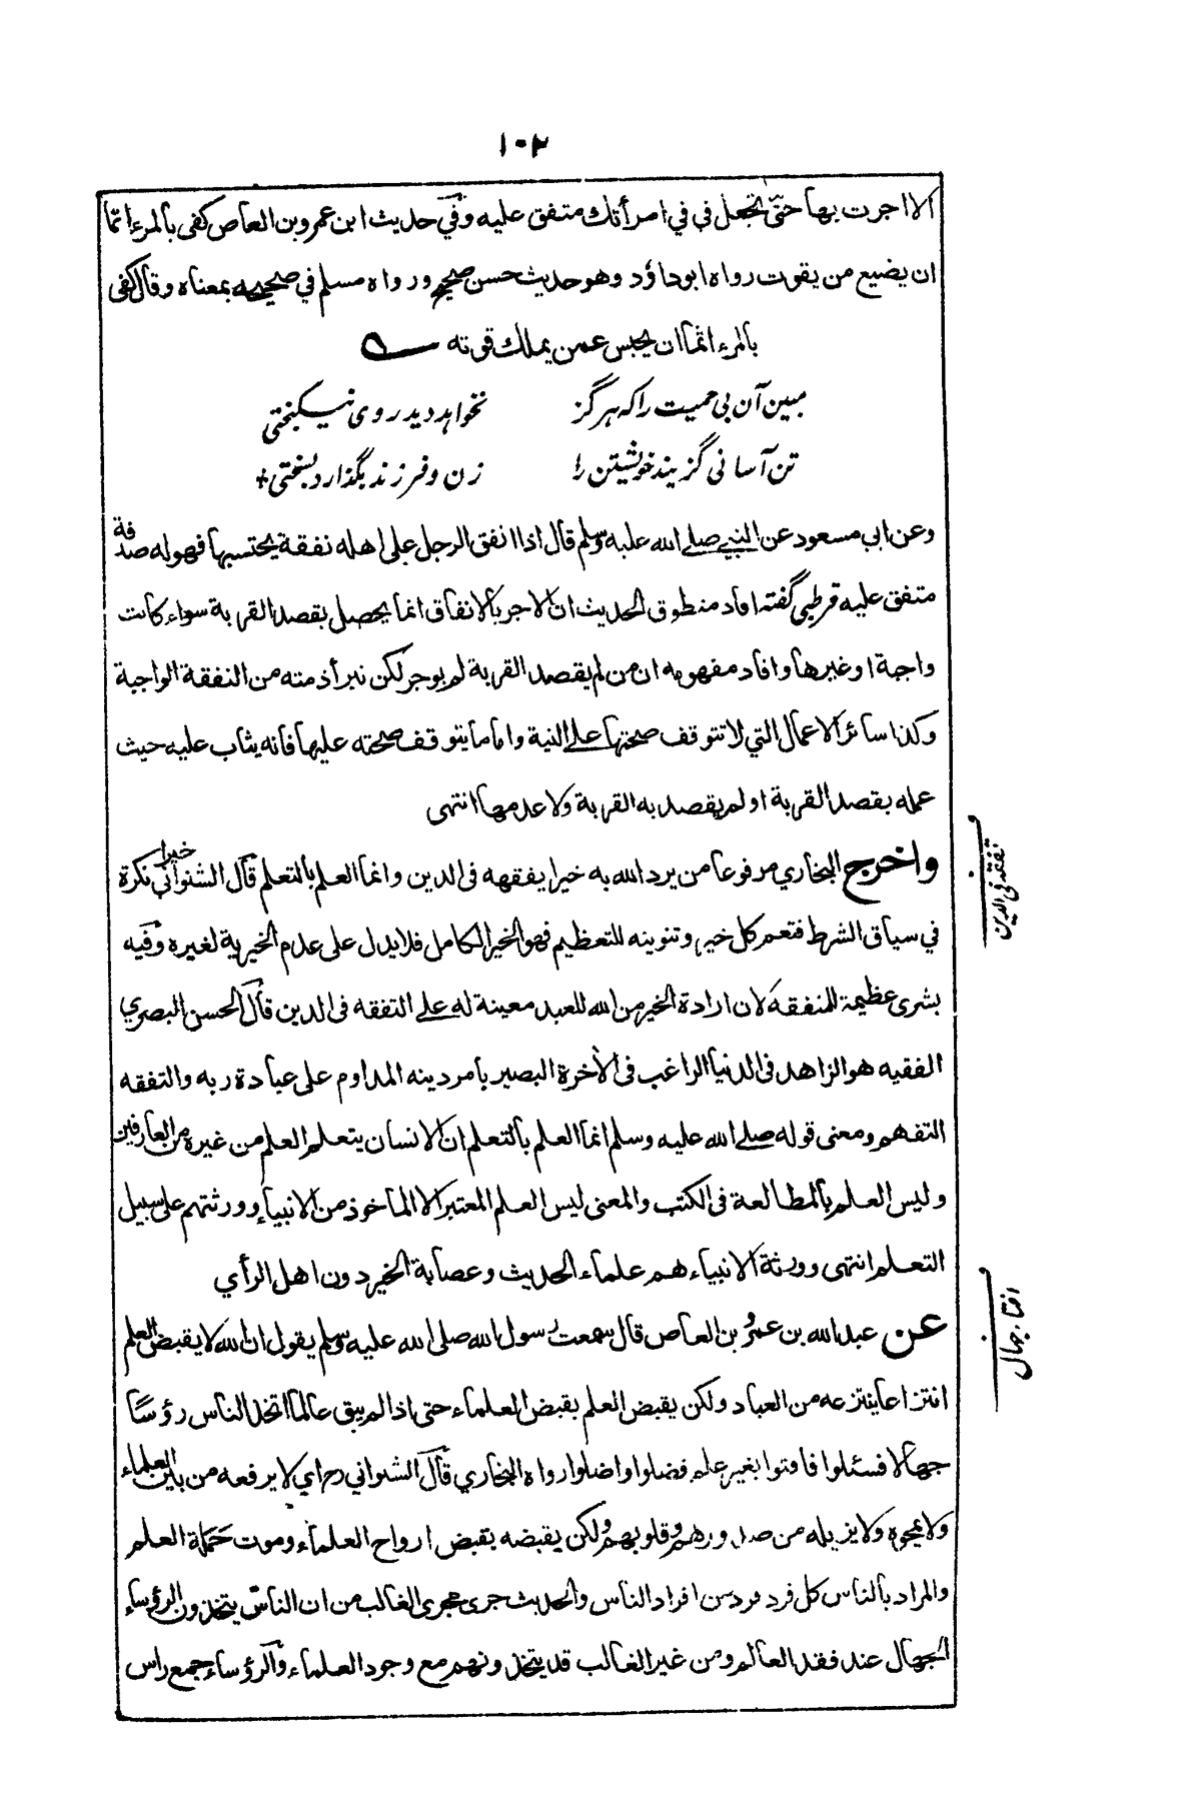 ١٠٢
الا اجرت بها حتى تجعل في في امرأتك متفق عليه وفي حديث ابن عمرو بن العاص كفى بالمرء اثما
ان يضيع من يقوت رواه ابوداؤد وهو حديث حسن صحيح ورواه مسلم في صحيحه بمعناه وقال كفى
بالمرء اثما ان يحبس عمن يملك قوته
مبین آن بی حمیت را که هرگز نخواهد دید روی نیکبختی
تن آسانی گزیند خویشتن را زن و فرزند بگذارد بسختی
وعن ابي مسعود عن النبي صلى الله عليه وسلم قال اذا انفق الرجل على اهله نفقة يحتسبها فهو له صدقة
متفق عليه قرطبي گفته افاد منطوق الحديث ان الاجر بالانفاق انما يحصل بقصد القربة سواء كانت
واجبة او غيرها وافاد مفهومه ان من لم يقصد القربة لم يوجر لكن تبرأ ذمته من النفقة الواجبة
وكذا سائر الاعمال التي لا تتوقف صحتها على النية واما ما يتوقف صحته عليها فانه يثاب عليه حيث
عمله بقصد القربة او لم يقصد به القربة ولا عدمها انتهى
واخرج البخاري مرفوعا من يرد الله به خيرا يفقهه فى الدين وانما العلم بالتعلم قال الشنواني خيرا نكرة
في سياق الشرط فتعم كل خير وتنوينه للتعظيم فهو الخير الكامل فلا يدل على عدم الخيرية لغيره وفيه
بشرى عظيمة للمتفقه لان ارادة الخير من الله للعبد معينة له على التفقه فى الدين قال الحسن البصري
الفقيه هو الزاهد فى الدنيا الراغب فى الأخرة البصير بأمر دينه المداوم على عبادة ربه والتفقه
التفهم ومعنى قوله صلى الله عليه وسلم انما العلم بالتعلم ان الانسان يتعلم العلم من غيره من العارفين
وليس العلم بالمطالعة فى الكتب والمعنى ليس العلم المعتبر الا المأخوذ من الانبياء وورثتهم على سبيل
التعلم انتهى وورثة الانبياء هم علماء الحديث وعصابة الخير دون اهل الرأي
عن عبد الله بن عمرو بن العاص قال سمعت رسول الله صلى الله عليه وسلم يقول ان الله لا يقبض العلم
انتزاعا ينتزعه من العباد ولكن يقبض العلم بقبض العلماء حتى اذا لم يبق عالما اتخذ الناس رؤسًا
جهالا فسئلوا فافتوا بغير علم فضلوا واضلوا رواه البخاري قال الشنواني رح اي لا يرفعه من بين العلماء
ولا يمحوه ولا يزيله من صدورهم وقلوبهم ولكن يقبضه بقبض ارواح العلماء وموت حَمَلة العلم
والمراد بالناس كل فرد فرد من افراد الناس والحديث جرى مجرى الغالب من ان الناس يتخذون الرؤساء
الجهال عند فقد العالم ومن غير الغالب قد يتخذونهم مع وجود العلماء والرؤساء جمع راس
تفقه فى الدين
افتاء جهال